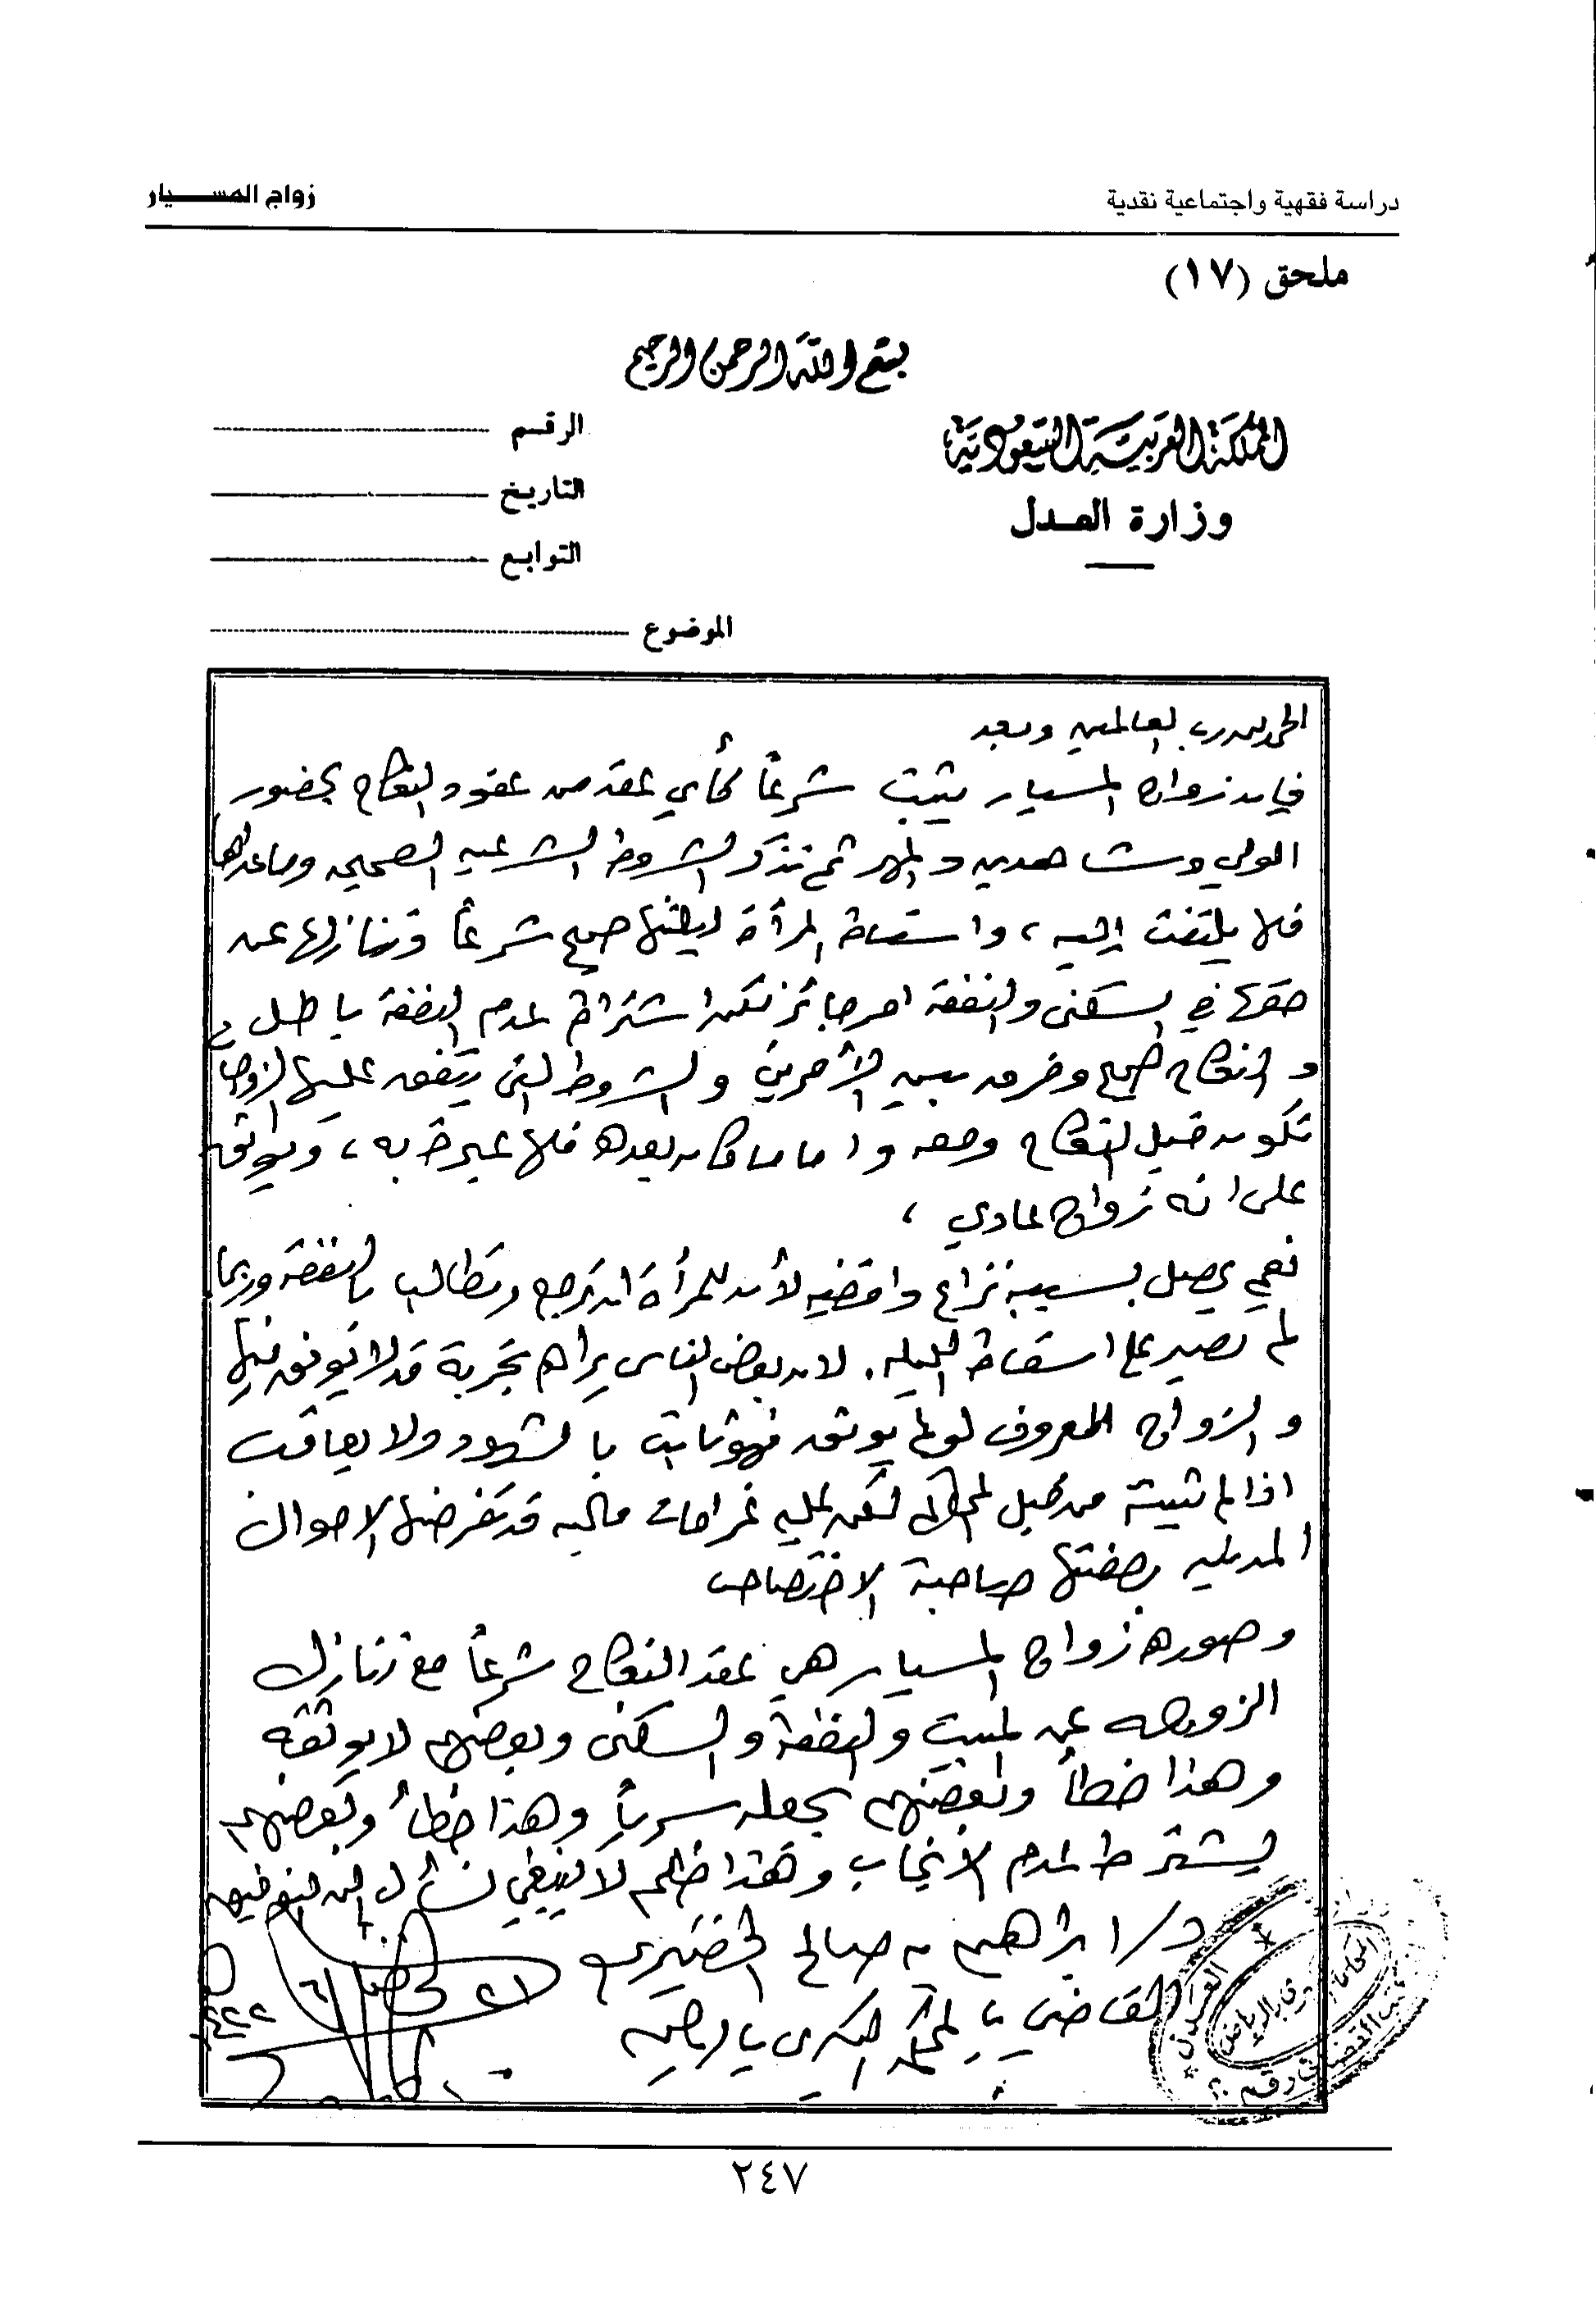 دراسة فقهية واجتماعية نقدية
زواج المسيار
ملحق (١٧)
بسم الله الرحمن الرحيم
المملكة العربية السعودية
وزارة العدل
الرقم
التاريخ
التوابع
الموضوع
الحمد لله رب العالمين وبعد
فإن زواج المسيار يثبت شرعاً كأي عقد من عقود النكاح بحضور
الولي وشاهدين والمهر ثم تذكر الشروط الشرعيه الصحيحه وماعداها
فلا يلتفت إليه، واسقاط المرأة ليلتها صحيح شرعاً وتنازلها عن
حقها في السكنى والنفقة امر جائز لكن اشتراط عدم النفقة باطل
والنكاح صحيح وفرق بين الأمرين والشروط التي يتفق عليها الزوجان
تكون قبل النكاح ومعه واما ما كان بعده فلا عبرة به، ويوثق
على انه زواج عادي،
نعم يحصل بسببه نزاع واقضيه لأن للمرأة ان ترجع وتطالب بالنفقة وربما
لم تصبر على اسقاط الليله. لان بعض الناس يراها تجربة قد لا يوفق فيها
والزواج المعروف لو لم يوثق فهو ثابت بالشهود ولا يعاقب
اذا لم تثبته من قبل المحاكم لكن عليه غرامات ماليه قد تفرضها الاحوال
المدنيه بصفتها صاحبة الاختصاص
وصوره زواج المسيار هي عقد النكاح شرعاً مع تنازل
الزوجه عن المبيت والنفقة والسكنى وبعضهم لا يوثقه
وهذا خطأ وبعضهم يجعله سرياً وهذا خطأ وبعضهم
يشترط عدم الانجاب وهذا ظلم لا ينبغي نسأل الله التوفيق
د/ ابراهيم بن صالح الخضيري
القاضي بالمحكمة الكبرى بالرياض
٢١/٦/١٤٢٢ هـ
٢٤٧